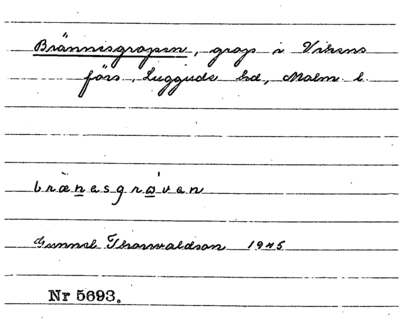 Brännisgropen, grop i Vikens
förs., Luggude hd, Malm. l.
brænesgråvan
Gunnel Thorwaldson 1945
Nr 5693.